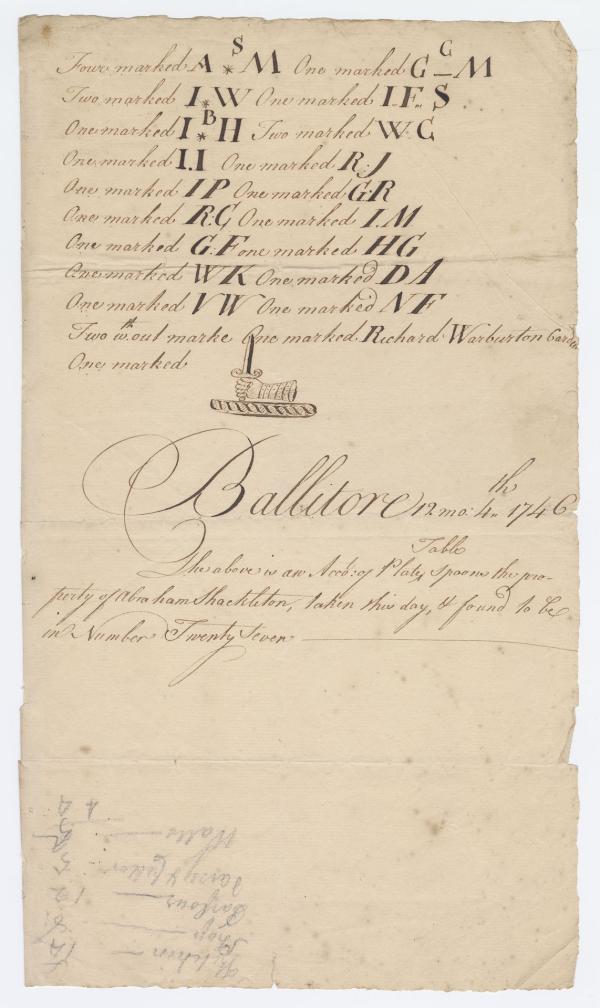 Four marked A S * M One marked G G – M
Two marked I * W One marked I.. F.. S
One marked I B * H Two marked W. C
One marked I. I One marked R. J
One marked I P One marked G. R
One marked R. G One marked I. M
One marked G. F one marked H G
One marked W K One marked D A
One marked V W One marked N F
Two wth.out marke One marked Richard Warburton
One marked
Ballitore 12. mo: 4th. 1746
The above is an Acco: of Plate Table Spoons the pro-
perty of Abraham Shackleton, taken this day, & found to be
in Number Twenty Seven
Kitchin
Shop
Parlour
Walls
4